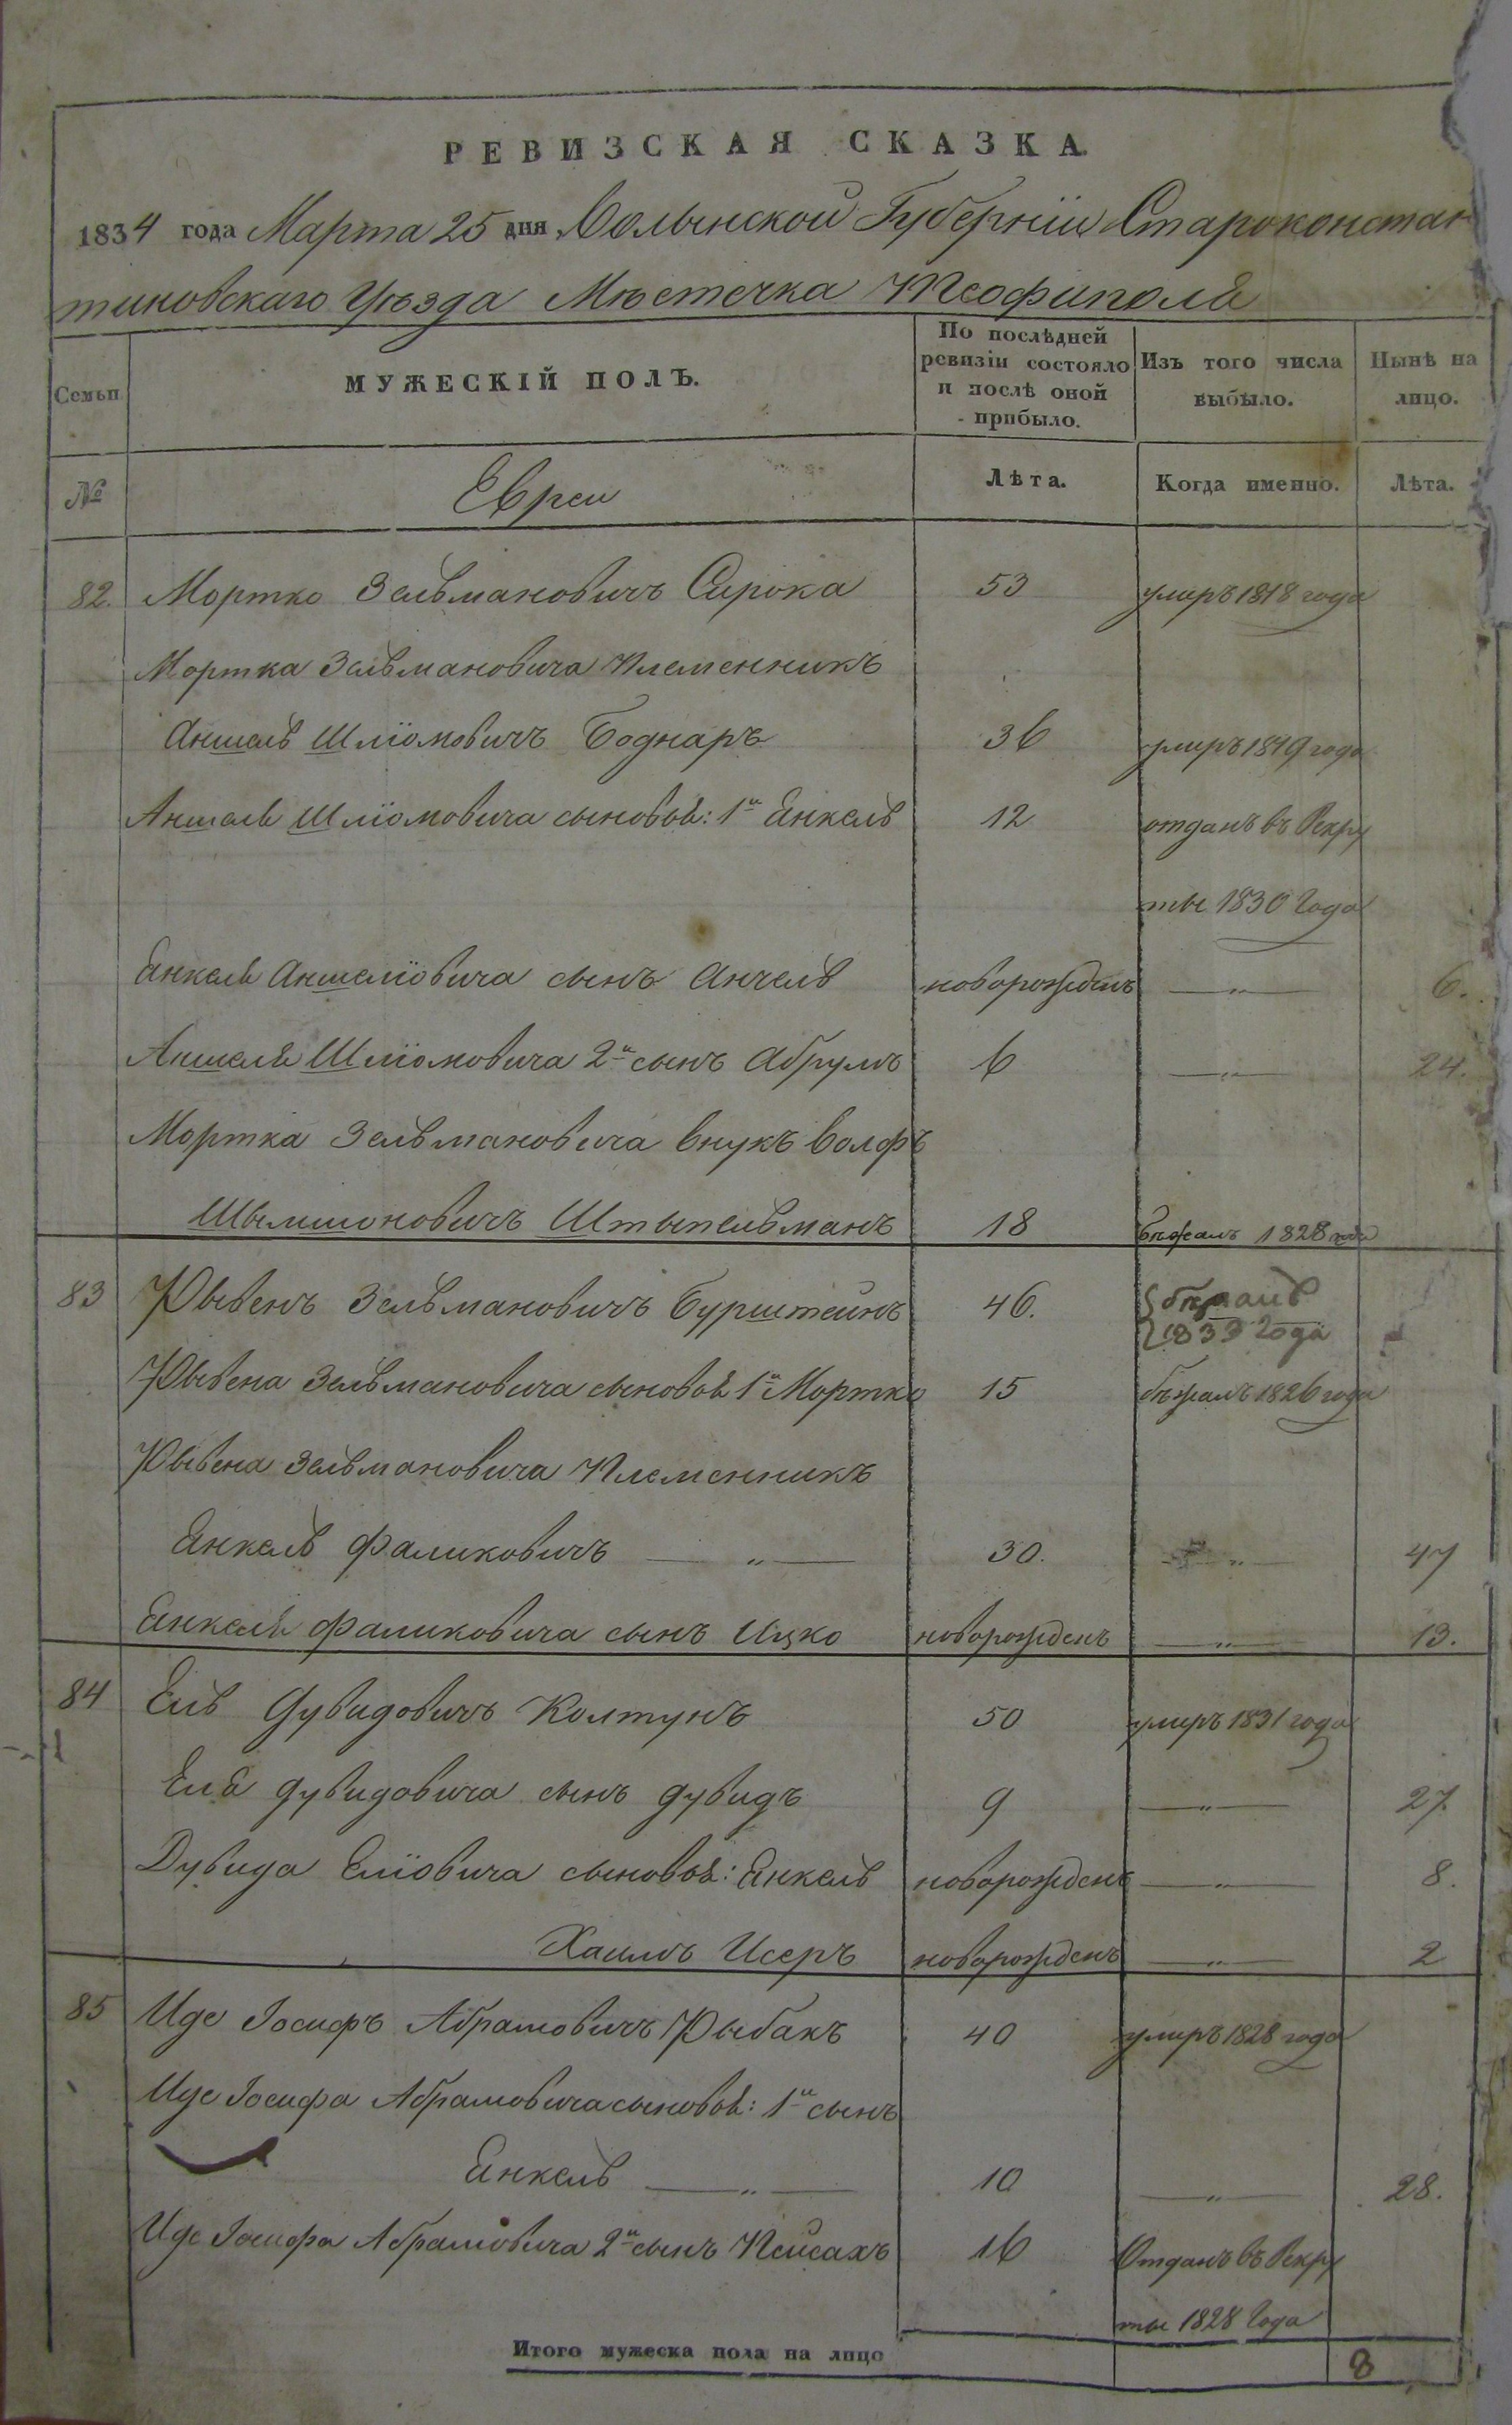 РЕВИЗСКАЯ СКАЗКА.
1834 года Марта 25 дня Волынской Губерніи Староконстан
тиновскаго Уѣзда Мѣстечка Теофиполя
Семьи
МУЖЕСКІЙ ПОЛЪ.
По послѣдней ревизіи состояло и послѣ оной прибыло.
Изъ того числа выбыло.
Нынѣ на лицо.
№ Евреи Лѣта. Когда именно. Лѣта.
82. Мортко Зельмановичъ Сирока 53 умиръ 1818 года
Мортка Зельмановича племенникъ
Аншель Шліомовичъ Боднаръ 36 умиръ 1819 года
Аншеля Шліомовича сыновья: 1й Янкель 12 отданъ въ Рекру
ты 1830 Года
Янкеля Аншеліовича сынъ Анчель новорожденъ — „ — 6.
Аншеля Шліомовича 2й сынъ Абрумъ 6 — „ — 24.
Мортка Зельмановича внукъ Волфъ
Шымшоновичъ Штыпельманъ 18 бѣжалъ 1828 года
83 Рывенъ Зельмановичъ Бурштейнъ 46. бѣжалъ
1833 Года
Рывена Зельмановича сыновья 1й Мортко 15 бѣжалъ 1826 года
Рывена Зельмановича племенникъ
Янкель Фаликовичъ — „ — 30. — „ — 47
Янкеля Фаликовича сынъ Ицко новорожденъ — „ — 13.
84 Ель Дувидовичъ Колтунъ 50 умиръ 1831 года
Еля Дувидовича сынъ Дувидъ 9 — „ — 27.
Дувида Еліовича сыновья: Янкель новорожденъ — „ — 8.
Хаимъ Исеръ новорожденъ — „ — 2
85 Иде Іосифъ Абрамовичъ Рыбакъ 40 умиръ 1828 года
Иде Іосифа Абрамовича сыновья: 1й сынъ
Янкель — „ — 10 — „ — 28.
Иде Іосифа Абрамовича 2й сынъ Пейсахъ 16 Отданъ въ Рекру
ты 1828 Года
Итого мужеска пола на лицо 8